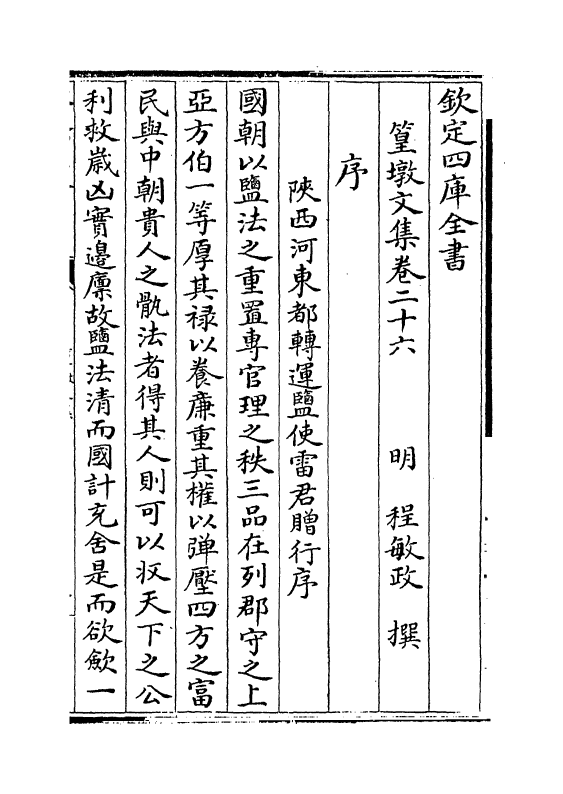 欽定四庫全書
篁墩文集卷二十六　明　程敏政　撰
序
陜西河東都轉運鹽使雷君贈行序
國朝以鹽法之重置専官理之秩三品在列郡守之上
亞方伯一等厚其禄以養廉重其權以弹壓四方之富
民與中朝貴人之骫法者得其人則可以收天下之公
利救歲凶實邊廪故鹽法清而國計充舍是而欲歛一